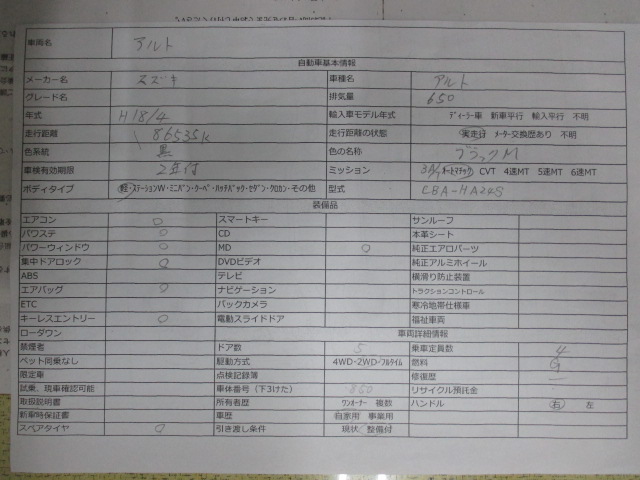 車両名 アルト
自動車基本情報
メーカー名 スズキ 車種名 アルト
グレード名 排気量 650
年式 H18/4 輸入車モデル年式 ディーラー車 新車平行 輸入平行 不明
走行距離 86535K 走行距離の状態 実走行 メーター交換歴あり 不明
色系統 黒 色の名称 ブラックM
車検有効期限 2年付 ミッション 3A/T オートマチック CVT 4速MT 5速MT 6速MT
ボディタイプ 軽・ステーションW・ミニバン・クーペ・ハッチバック・セダン・クロカン・その他 型式 CBA-HA24S
装備品
エアコン ○ スマートキー サンルーフ
パワステ ○ CD 本革シート
パワーウィンドウ ○ MD ○ 純正エアロパーツ
集中ドアロック ○ DVDビデオ 純正アルミホイール
ABS テレビ 横滑り防止装置
エアバッグ ○ ナビゲーション トラクションコントロール
ETC バックカメラ 寒冷地帯仕様車
キーレスエントリー ○ 電動スライドドア 福祉車両
ローダウン 車両詳細情報
禁煙者 ドア数 5 乗車定員数 4
ペット同乗なし 駆動方式 4WD・2WD・フルタイム 燃料 G
限定車 点検記録簿 修復歴 —
試乗、現車確認可能 車体番号（下3けた） 860 リサイクル預託金
取扱説明書 所有者歴 ワンオーナー 複数 ハンドル 右 左
新車時保証書 車歴 自家用 事業用
スペアタイヤ ○ 引き渡し条件 現状／整備付